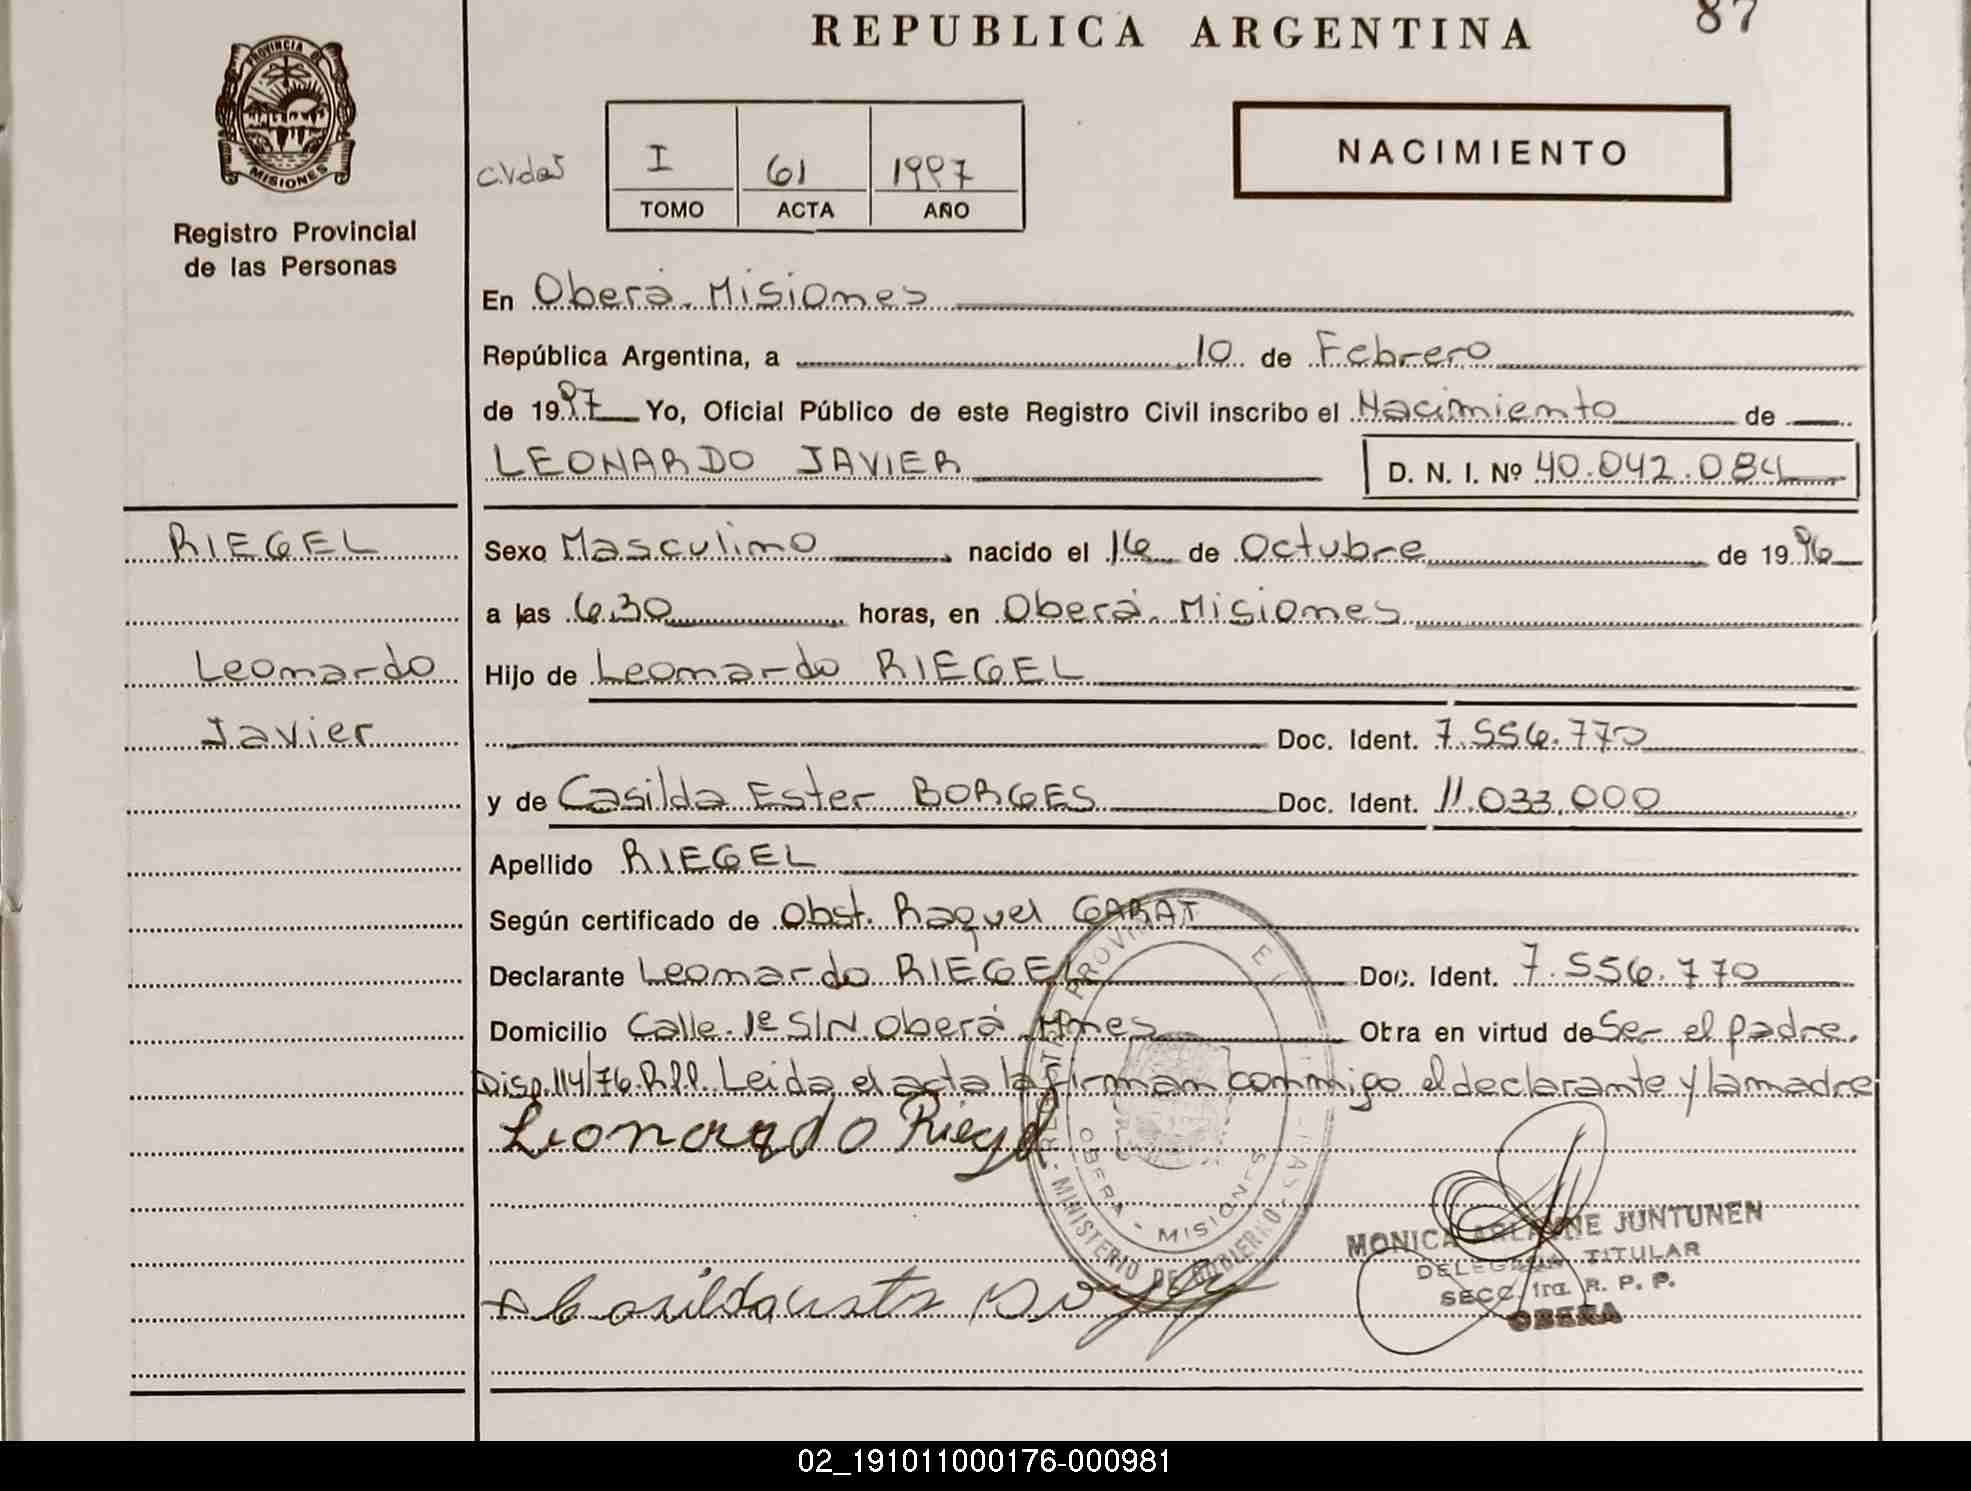 REPUBLICA ARGENTINA
87
PROVINCIA DE
MISIONES
Registro Provincial
de las Personas
C.Vda5
I 61 1997
TOMO ACTA AÑO
NACIMIENTO
En Oberá. Misiones
República Argentina, a 10 de Febrero
de 1997 Yo, Oficial Público de este Registro Civil inscribo el Nacimiento de
LEONARDO JAVIER D. N. I. Nº 40.042.084
RIEGEL
Leonardo
Javier
Sexo Masculino nacido el 16 de Octubre de 1996
a las 6.30 horas, en Oberá. Misiones
Hijo de Leonardo RIEGEL
Doc. Ident. 7.556.770
y de Casilda Ester BORGES Doc. Ident. 11.033.000
Apellido RIEGEL
Según certificado de Obst. Raquel GARAT
Declarante Leonardo RIEGEL Doc. Ident. 7.556.770
Domicilio Calle 1º S/N. Oberá Mnes Obra en virtud de Ser el padre.
Disp. 114/76. R.P.P. Leida el acta la firman conmigo el declarante y la madre
Leonardo Riegel
OBERA - MISIONES
MINISTERIO DE GOBIERNO
MONICA JUNTUNEN
DELEGADA TITULAR
SECC. 1ra. R. P. P.
OBERA
02_191011000176-000981